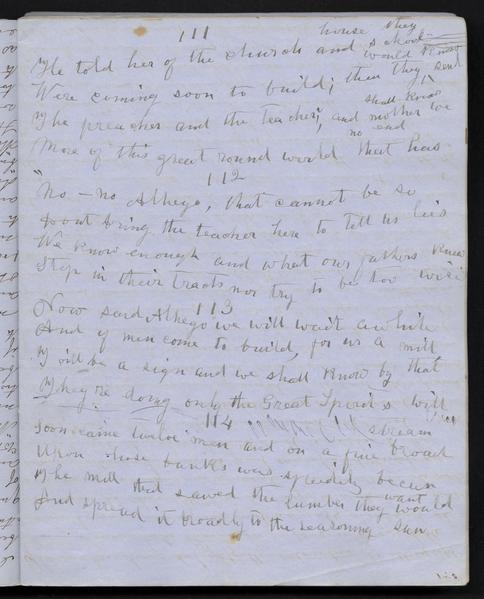 111
house they
He told her of the church and school
would know
Were coming soon to build; then they send
The preacher and the teacher, and mother we
shall know
no end
More of this great round world that has
112
"No - no Alhego, that cannot be so
Dont bring the teacher here to tell us lies
We know enough and what our fathers knew
Step in their tracts nor try to be too wise
113
Now said Alhego we will wait awhile
And if men come to build, for us a mill
T'will be a sign and we shall know by that
They're doing only the Great Spirits will"
114
Soon came twelve men and on a fine broad stream
Upon whose banks was speedily begun
The mill that sawed the lumber they would want
And spread it broadly to the seasoning sun